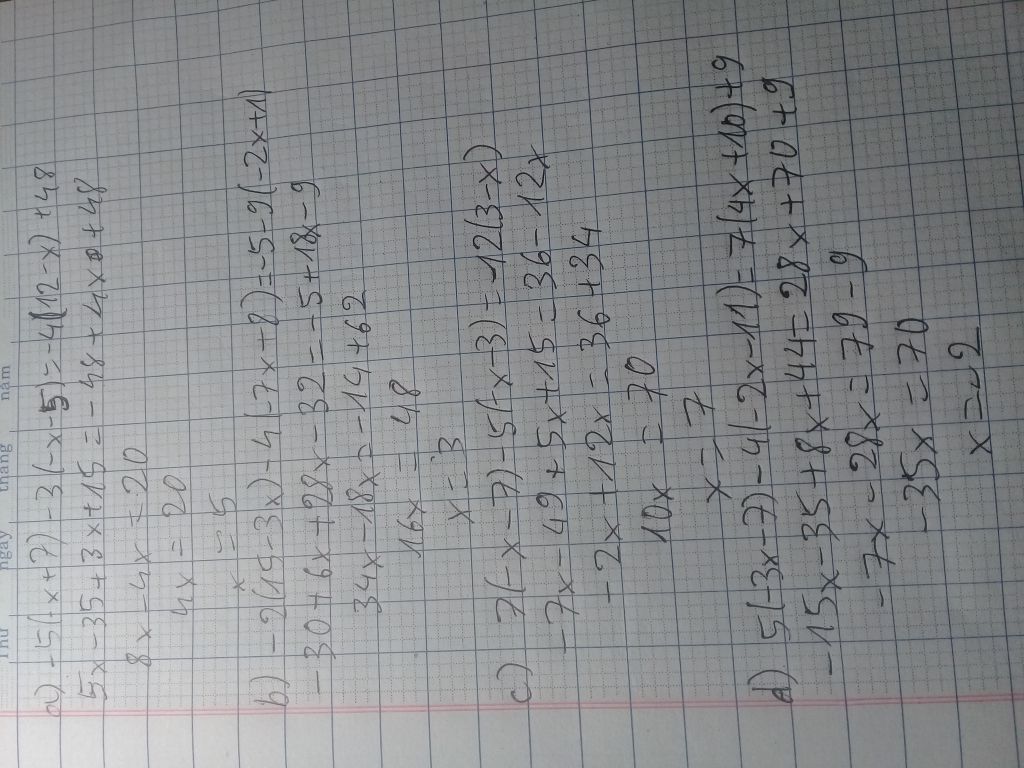 Thứ ngày tháng năm
a) -5(-x+7)-3(-x-5)=-4(12-x)+48
5x-35+3x+15=-48+4x+48
8x-4x=20
4x=20
x=5
b) -2(15-3x)-4(-7x+8)=-5-9(-2x+1)
-30+6x+28x-32=-5+18x-9
34x-18x=-14+62
16x=48
x=3
c) 7(-x-7)-5(-x-3)=-12(3-x)
-7x-49+5x+15=36-12x
-2x+12x=36+34
10x=70
x=7
d) 5(-3x-7)-4(-2x-11)=7(4x+10)+9
-15x-35+8x+44=28x+70+9
-7x-28x=79-9
-35x=70
x=-2